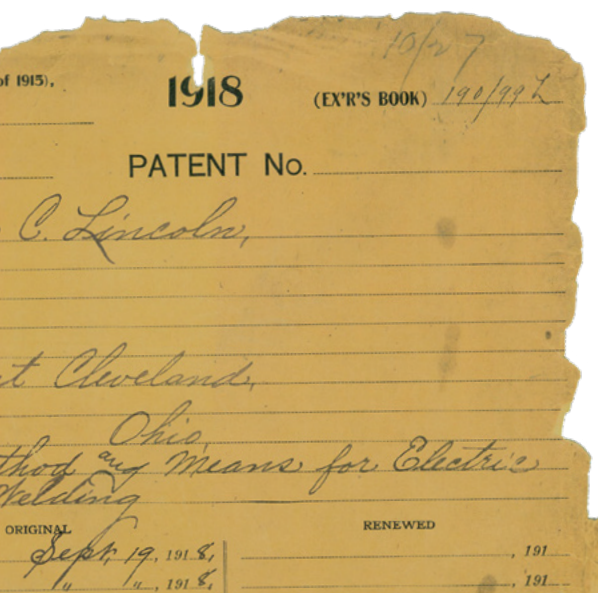 10/27
of 1915),
1918
(EX'R'S BOOK) 190/992
PATENT No.
C. Lincoln,
t Cleveland,
Ohio,
thod and Means for Electric
Welding
ORIGINAL RENEWED
Sept. 19, 1918, , 191
" ", 1918, , 191